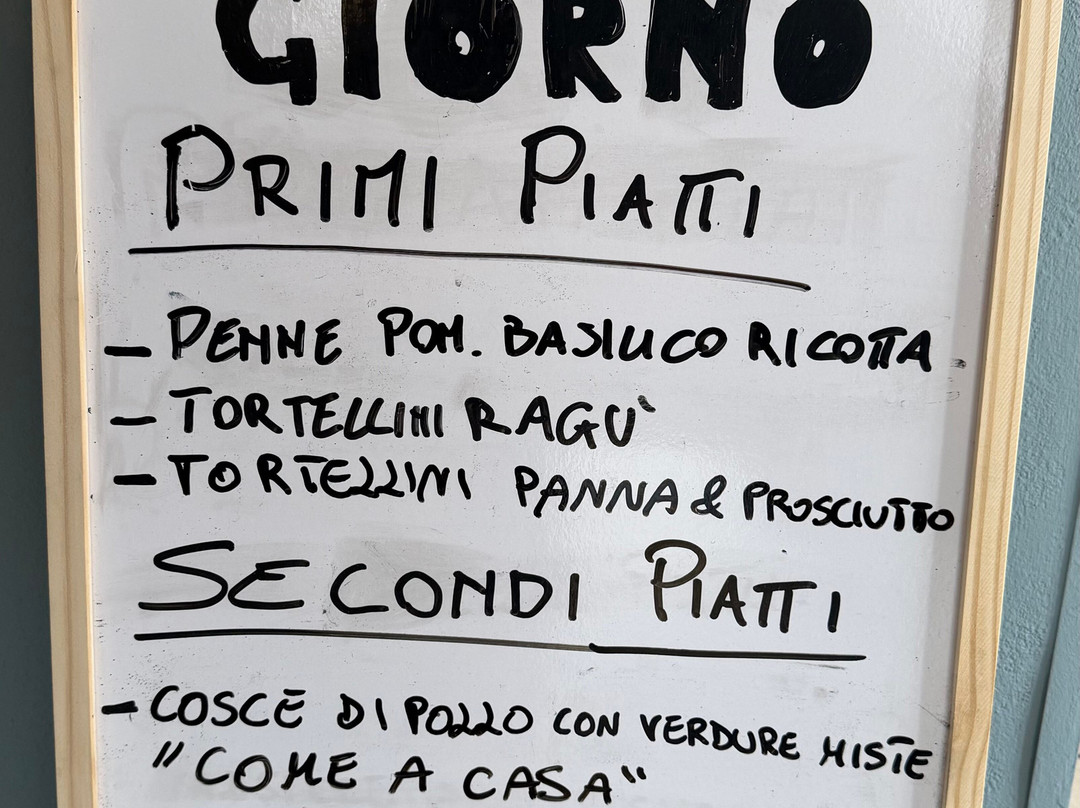 GIORNO
PRIMI PIATTI
- PENNE POM. BASILICO RICOTTA
- TORTELLINI RAGÙ
- TORTELLINI PANNA & PROSCIUTTO
SECONDI PIATTI
- COSCE DI POLLO CON VERDURE MISTE
"COME A CASA"